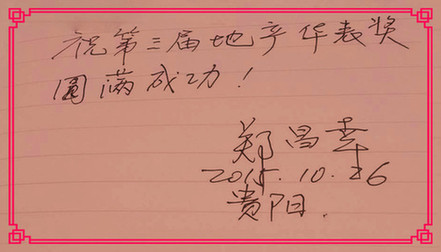 祝第三届地产华表奖
圆满成功！
郑昌幸
2015.10.26
贵阳.